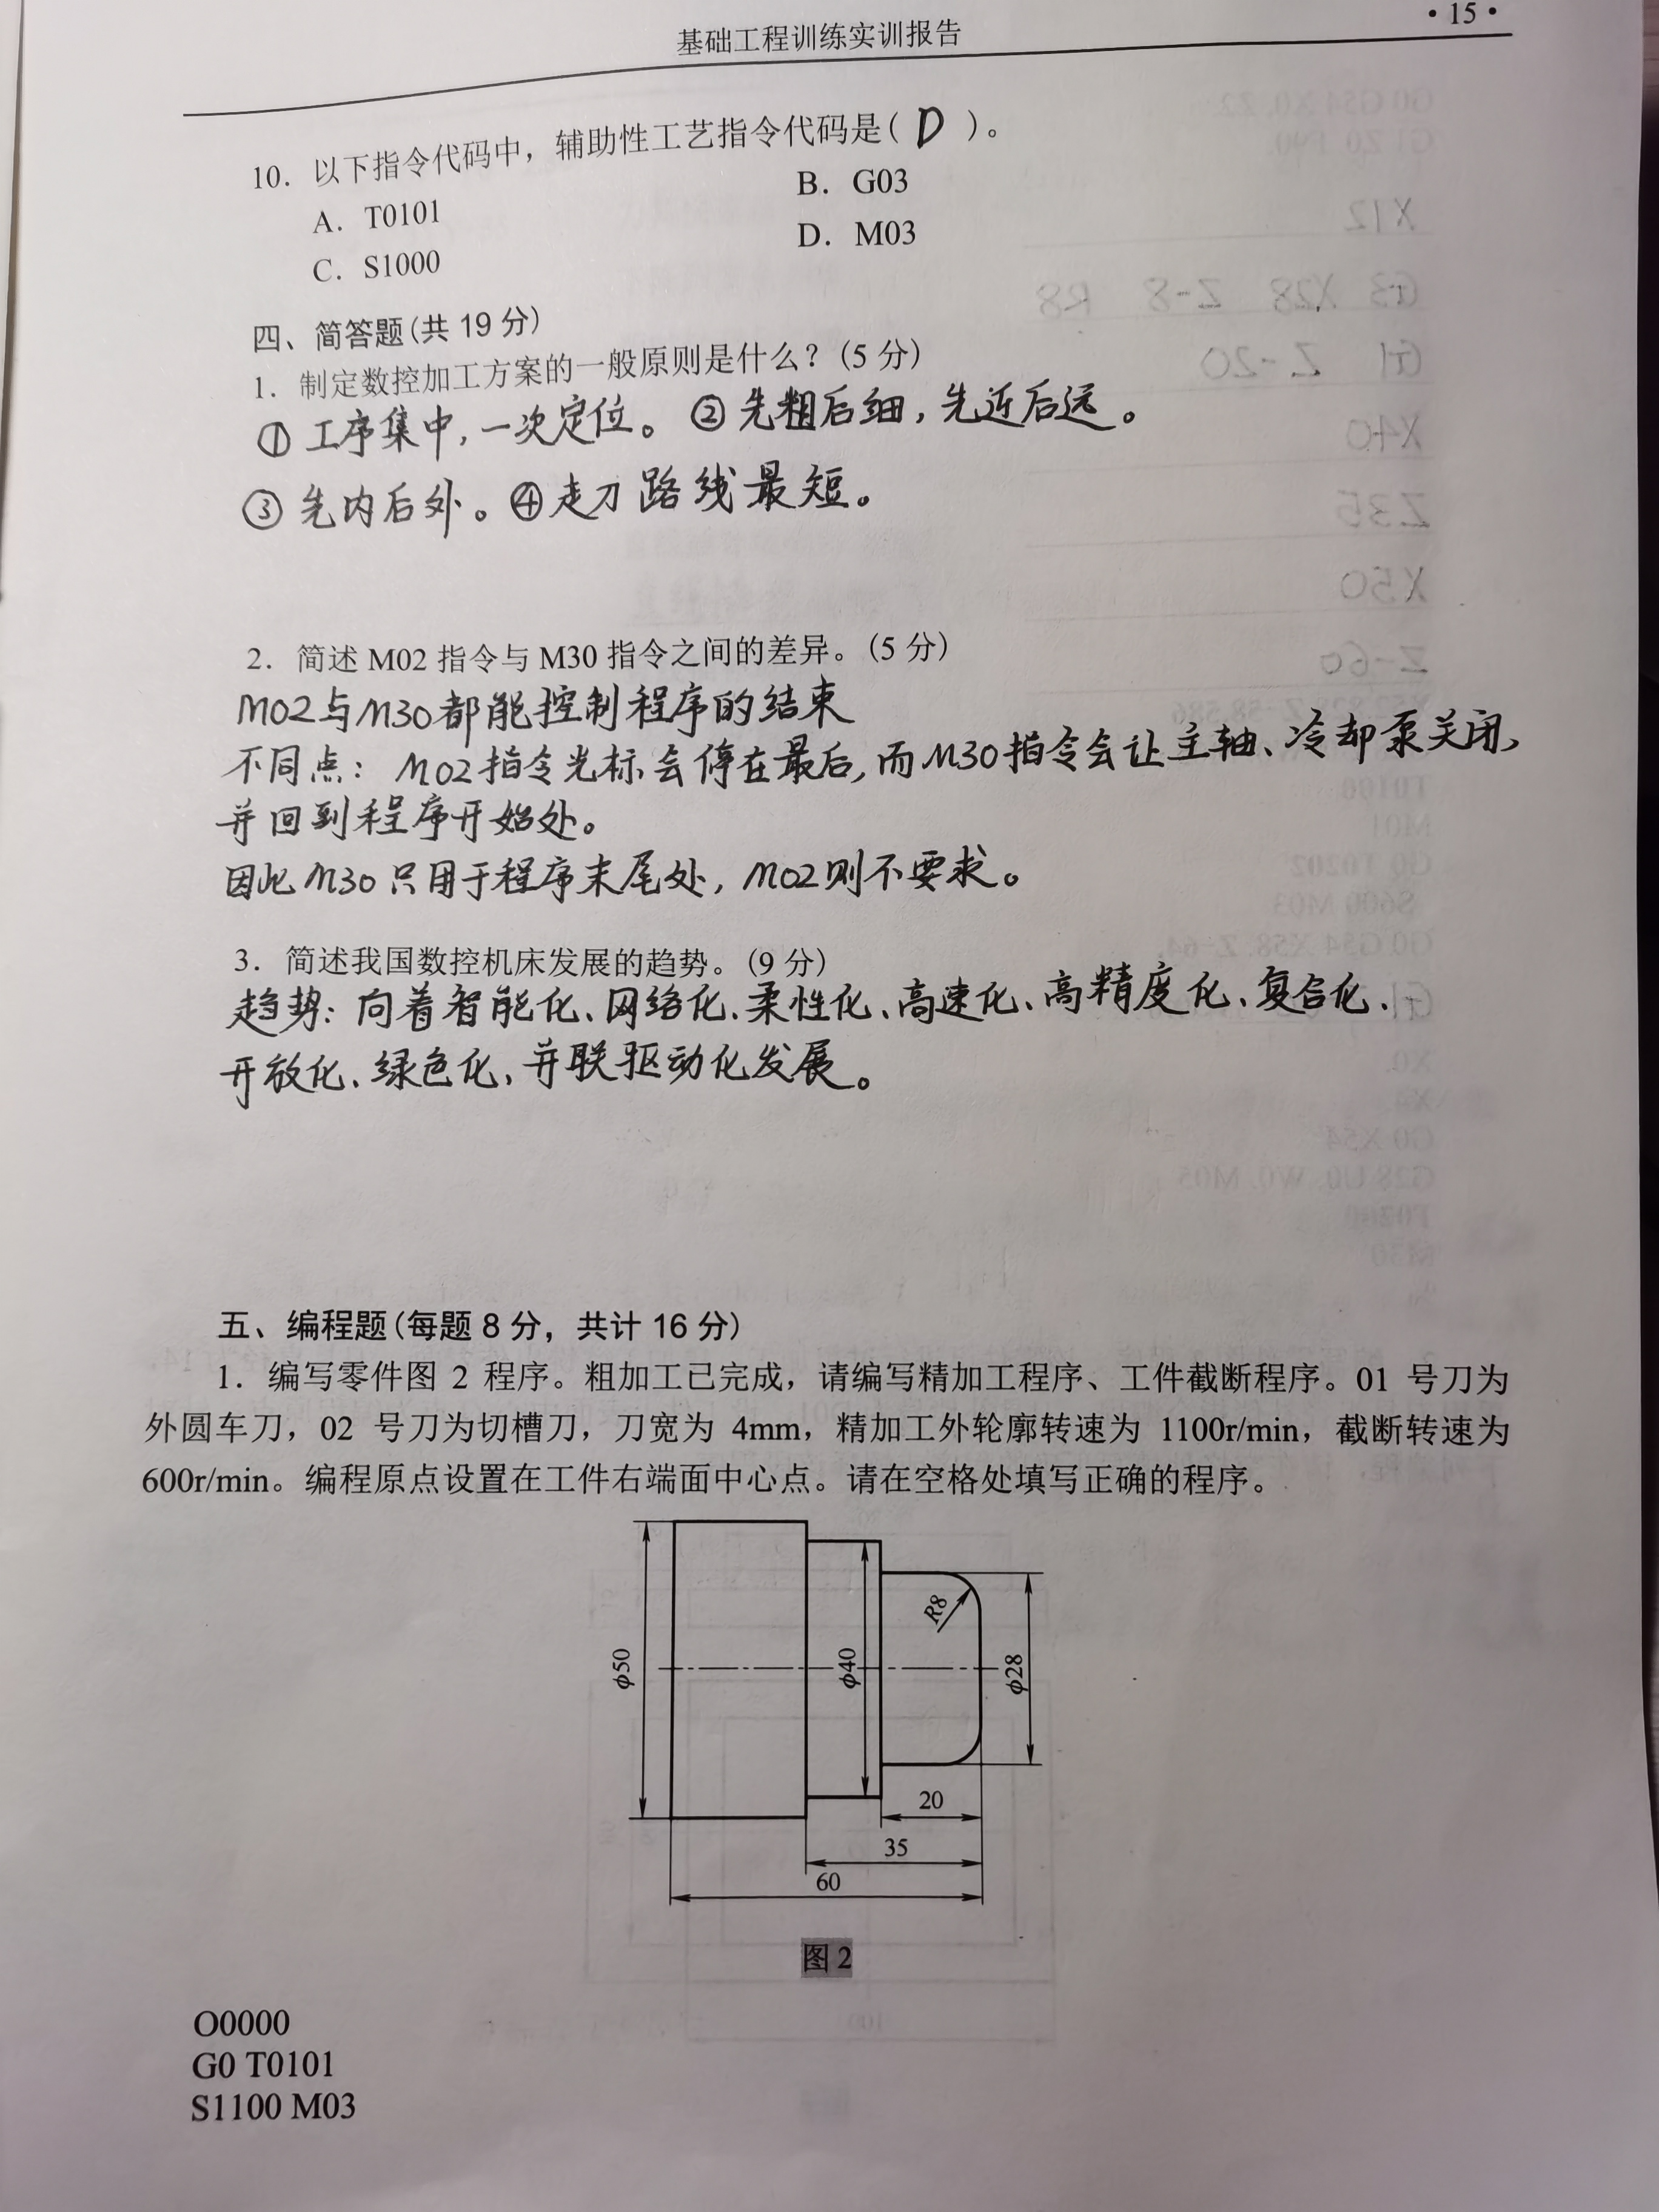 基础工程训练实训报告
·15·
10. 以下指令代码中，辅助性工艺指令代码是( D )。
A. T0101
B. G03
C. S1000
D. M03
四、简答题(共 19 分)
1. 制定数控加工方案的一般原则是什么？(5 分)
① 工序集中，一次定位。② 先粗后细，先近后远。
③ 先内后外。④走刀路线最短。
2. 简述 M02 指令与 M30 指令之间的差异。(5 分)
M02与M30都能控制程序的结束
不同点：M02指令光标会停在最后，而M30指令会让主轴、冷却泵关闭、
并回到程序开始处。
因此M30只用于程序末尾处，M02则不要求。
3. 简述我国数控机床发展的趋势。(9 分)
趋势：向着智能化、网络化、柔性化、高速化、高精度化、复合化、
开放化、绿色化、并联驱动化发展。
五、编程题(每题 8 分，共计 16 分)
1. 编写零件图 2 程序。粗加工已完成，请编写精加工程序、工件截断程序。01 号刀为
外圆车刀，02 号刀为切槽刀，刀宽为 4mm，精加工外轮廓转速为 1100r/min，截断转速为
600r/min。编程原点设置在工件右端面中心点。请在空格处填写正确的程序。
R8
ϕ50
ϕ40
ϕ28
20
35
60
图 2
O0000
G0 T0101
S1100 M03